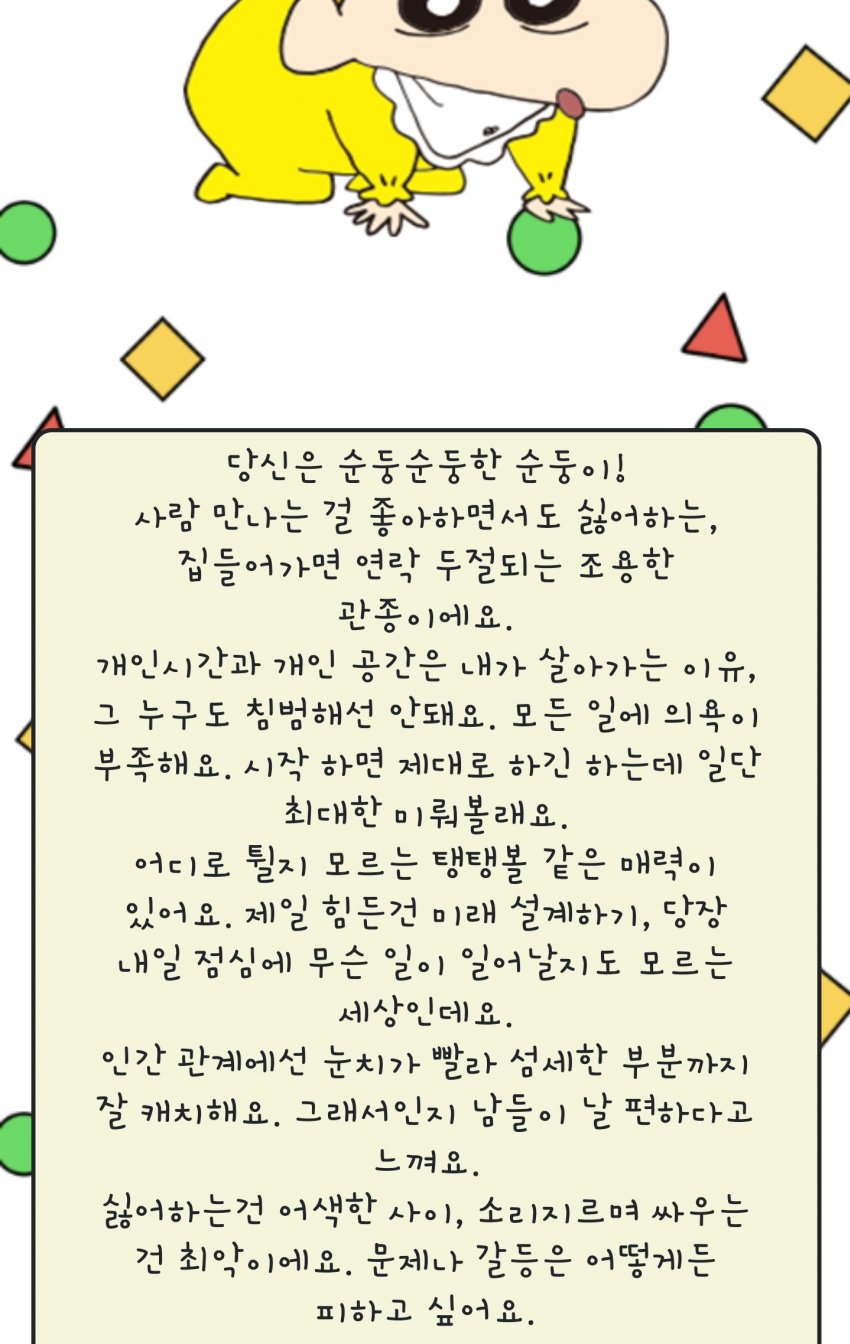 당신은 순둥순둥한 순둥이!
사람 만나는 걸 좋아하면서도 싫어하는,
집들어가면 연락 두절되는 조용한
관종이에요.
개인시간과 개인 공간은 내가 살아가는 이유,
그 누구도 침범해선 안돼요. 모든 일에 의욕이
부족해요. 시작 하면 제대로 하긴 하는데 일단
최대한 미뤄볼래요.
어디로 튈지 모르는 탱탱볼 같은 매력이
있어요. 제일 힘든건 미래 설계하기, 당장
내일 점심에 무슨 일이 일어날지도 모르는
세상인데요.
인간 관계에선 눈치가 빨라 섬세한 부분까지
잘 캐치해요. 그래서인지 남들이 날 편하다고
느껴요.
싫어하는건 어색한 사이, 소리지르며 싸우는
건 최악이에요. 문제나 갈등은 어떻게든
피하고 싶어요.